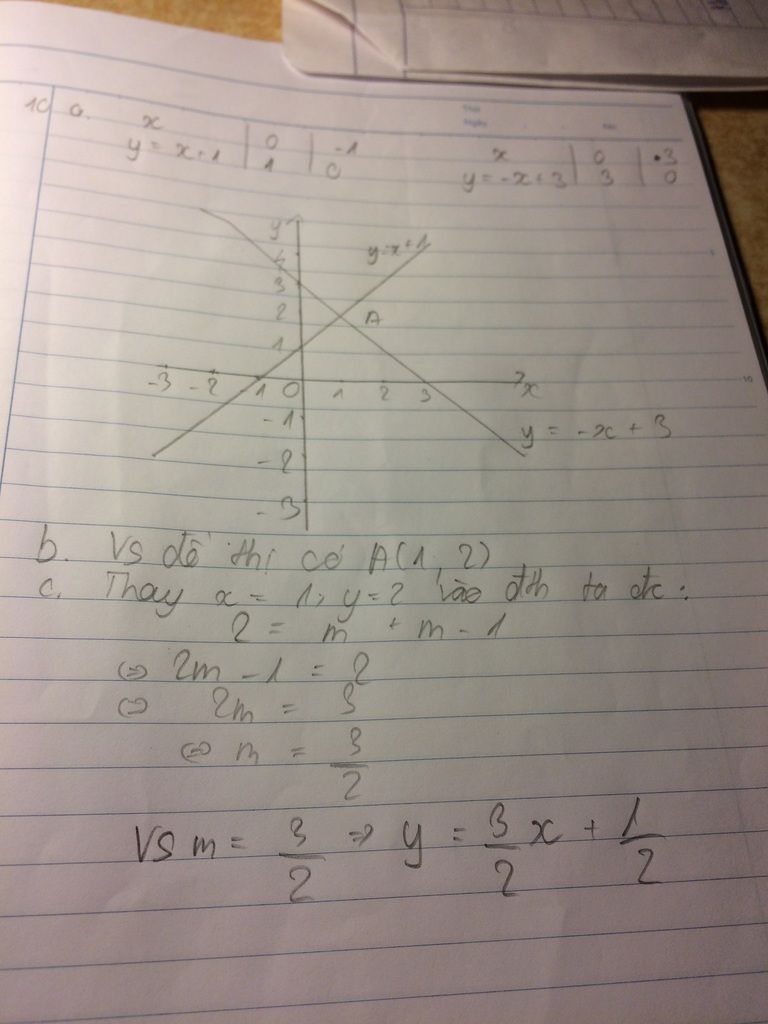 10 a.
x | 0 | -1
y = x+1 | 1 | 0
x | 0 | 3
y = -x+3 | 3 | 0
y
y=x+1
4
3
2 A
1
-3 -2 -1 0 1 2 3 x
-1
y = -x + 3
-2
-3
b. Vs đồ thị có A(1, 2)
c. Thay x = 1, y=2 vào đth ta đc:
2 = m + m - 1
⇔ 2m - 1 = 2
⇔ 2m = 3
⇔ m = 3/2
Vs m = 3/2 ⇒ y = 3/2 x + 1/2